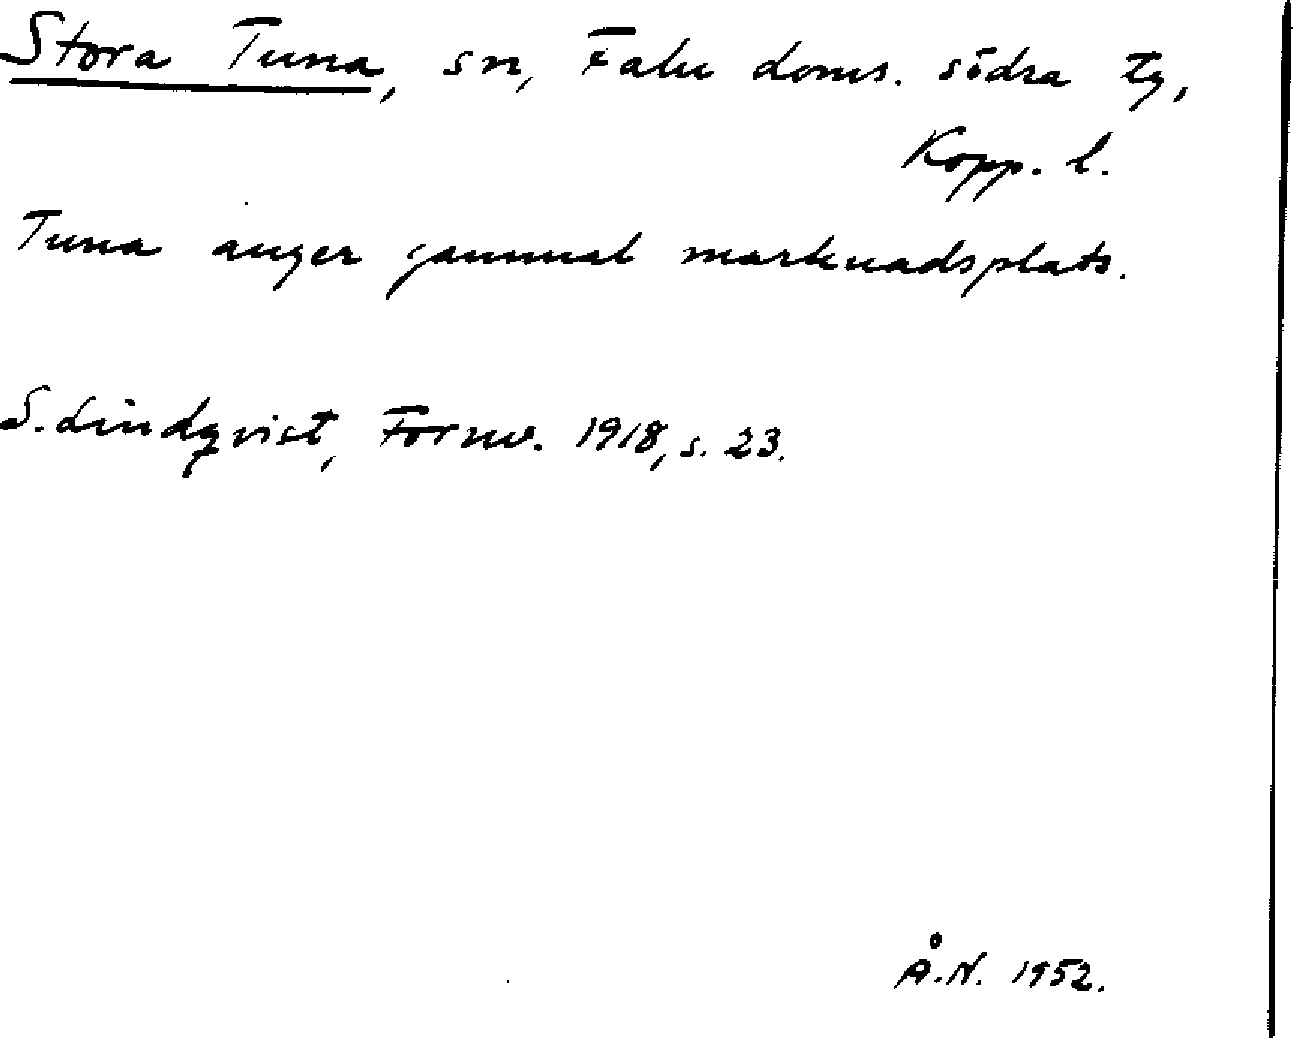 Stora Tuna, sn, Falu doms. södra tg,
Kopp. l.
Tuna anger gammal marknadsplats.
S. Lindqvist, Fornv. 1918, s. 23.
Å.N. 1952.